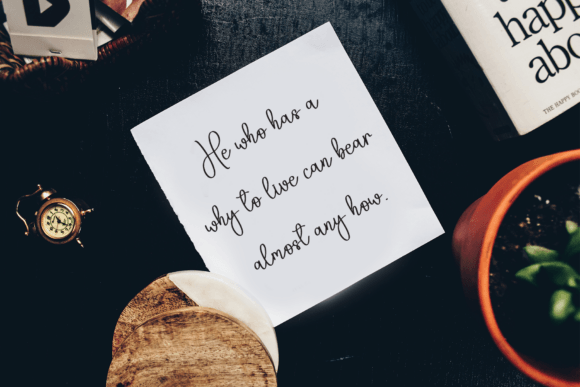 He who has a
why to live can bear
almost any how.
happ
abo
THE HAPPY BO